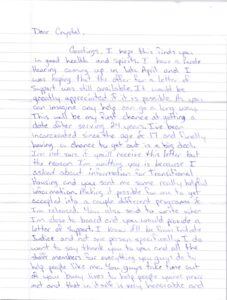 Dear Crystal,
Greetings, I hope this finds you
in good health and spirits. I have a Parole
Hearing coming up in late April and I
was hoping that the offer for a letter of
Support was still available. It would be
greatly appreciated if it is possible. As you
can imagine any help can go a long ways.
This will be my first chance at getting a
date after serving 24 years. I've been
incarcerated since the age of 17 and finally
having a chance to get out is a big deal.
I'm not sure if you'll receive this letter but
the reason I'm writing you is because I
asked about information for Transitional
Housing, and you sent me some really helpful
information. Making it possible for me to get
accepted into a couple different programs if
I'm released. You also said to write when
I'm close to board and you would provide a
letter of Support. I know it'll be from
Justice and not one person specifically. I do
want to say thank you to you and all the
staff members for everything you guys do to
help people like me. You guys take time out
of your busy lives to help people you've never
met and that in itself is very honorable and